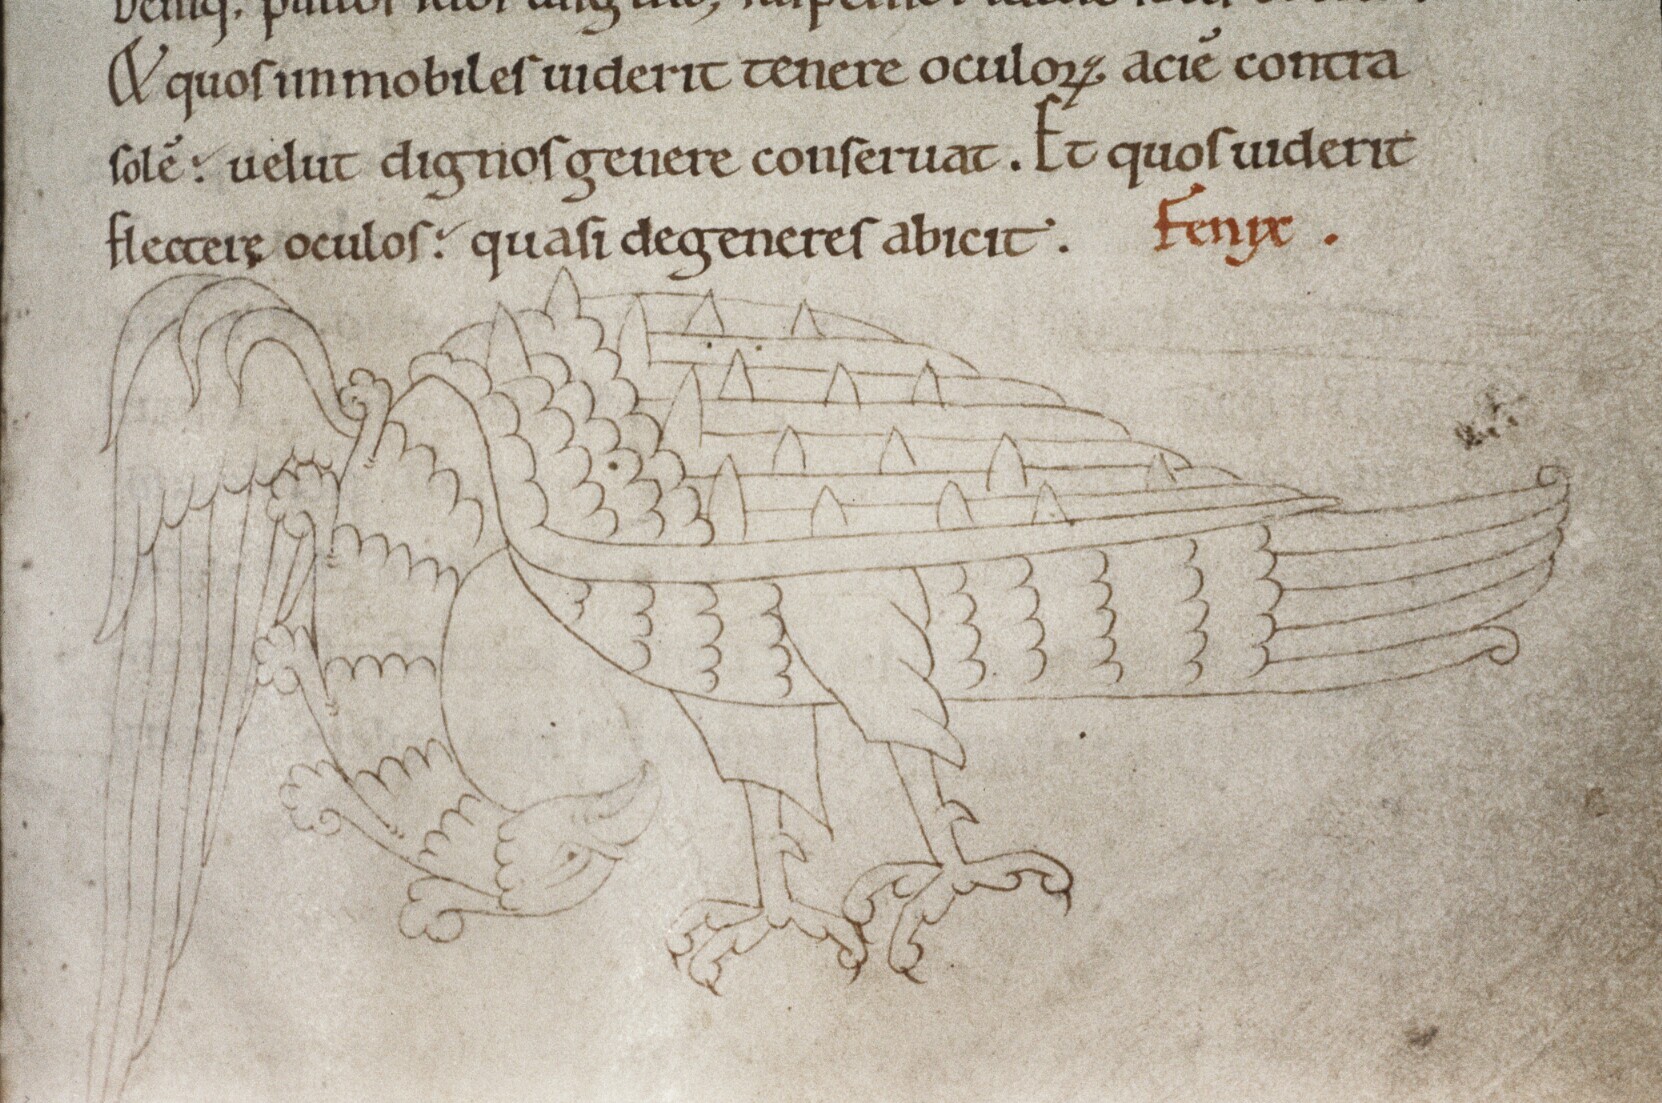 Et quos inmobiles uiderit tenere oculoꝝ acıē contra
solē: uelut dignos genere conseruat. Et quos uiderit
flectere oculos: quasi degeneres abicit. Fenix.